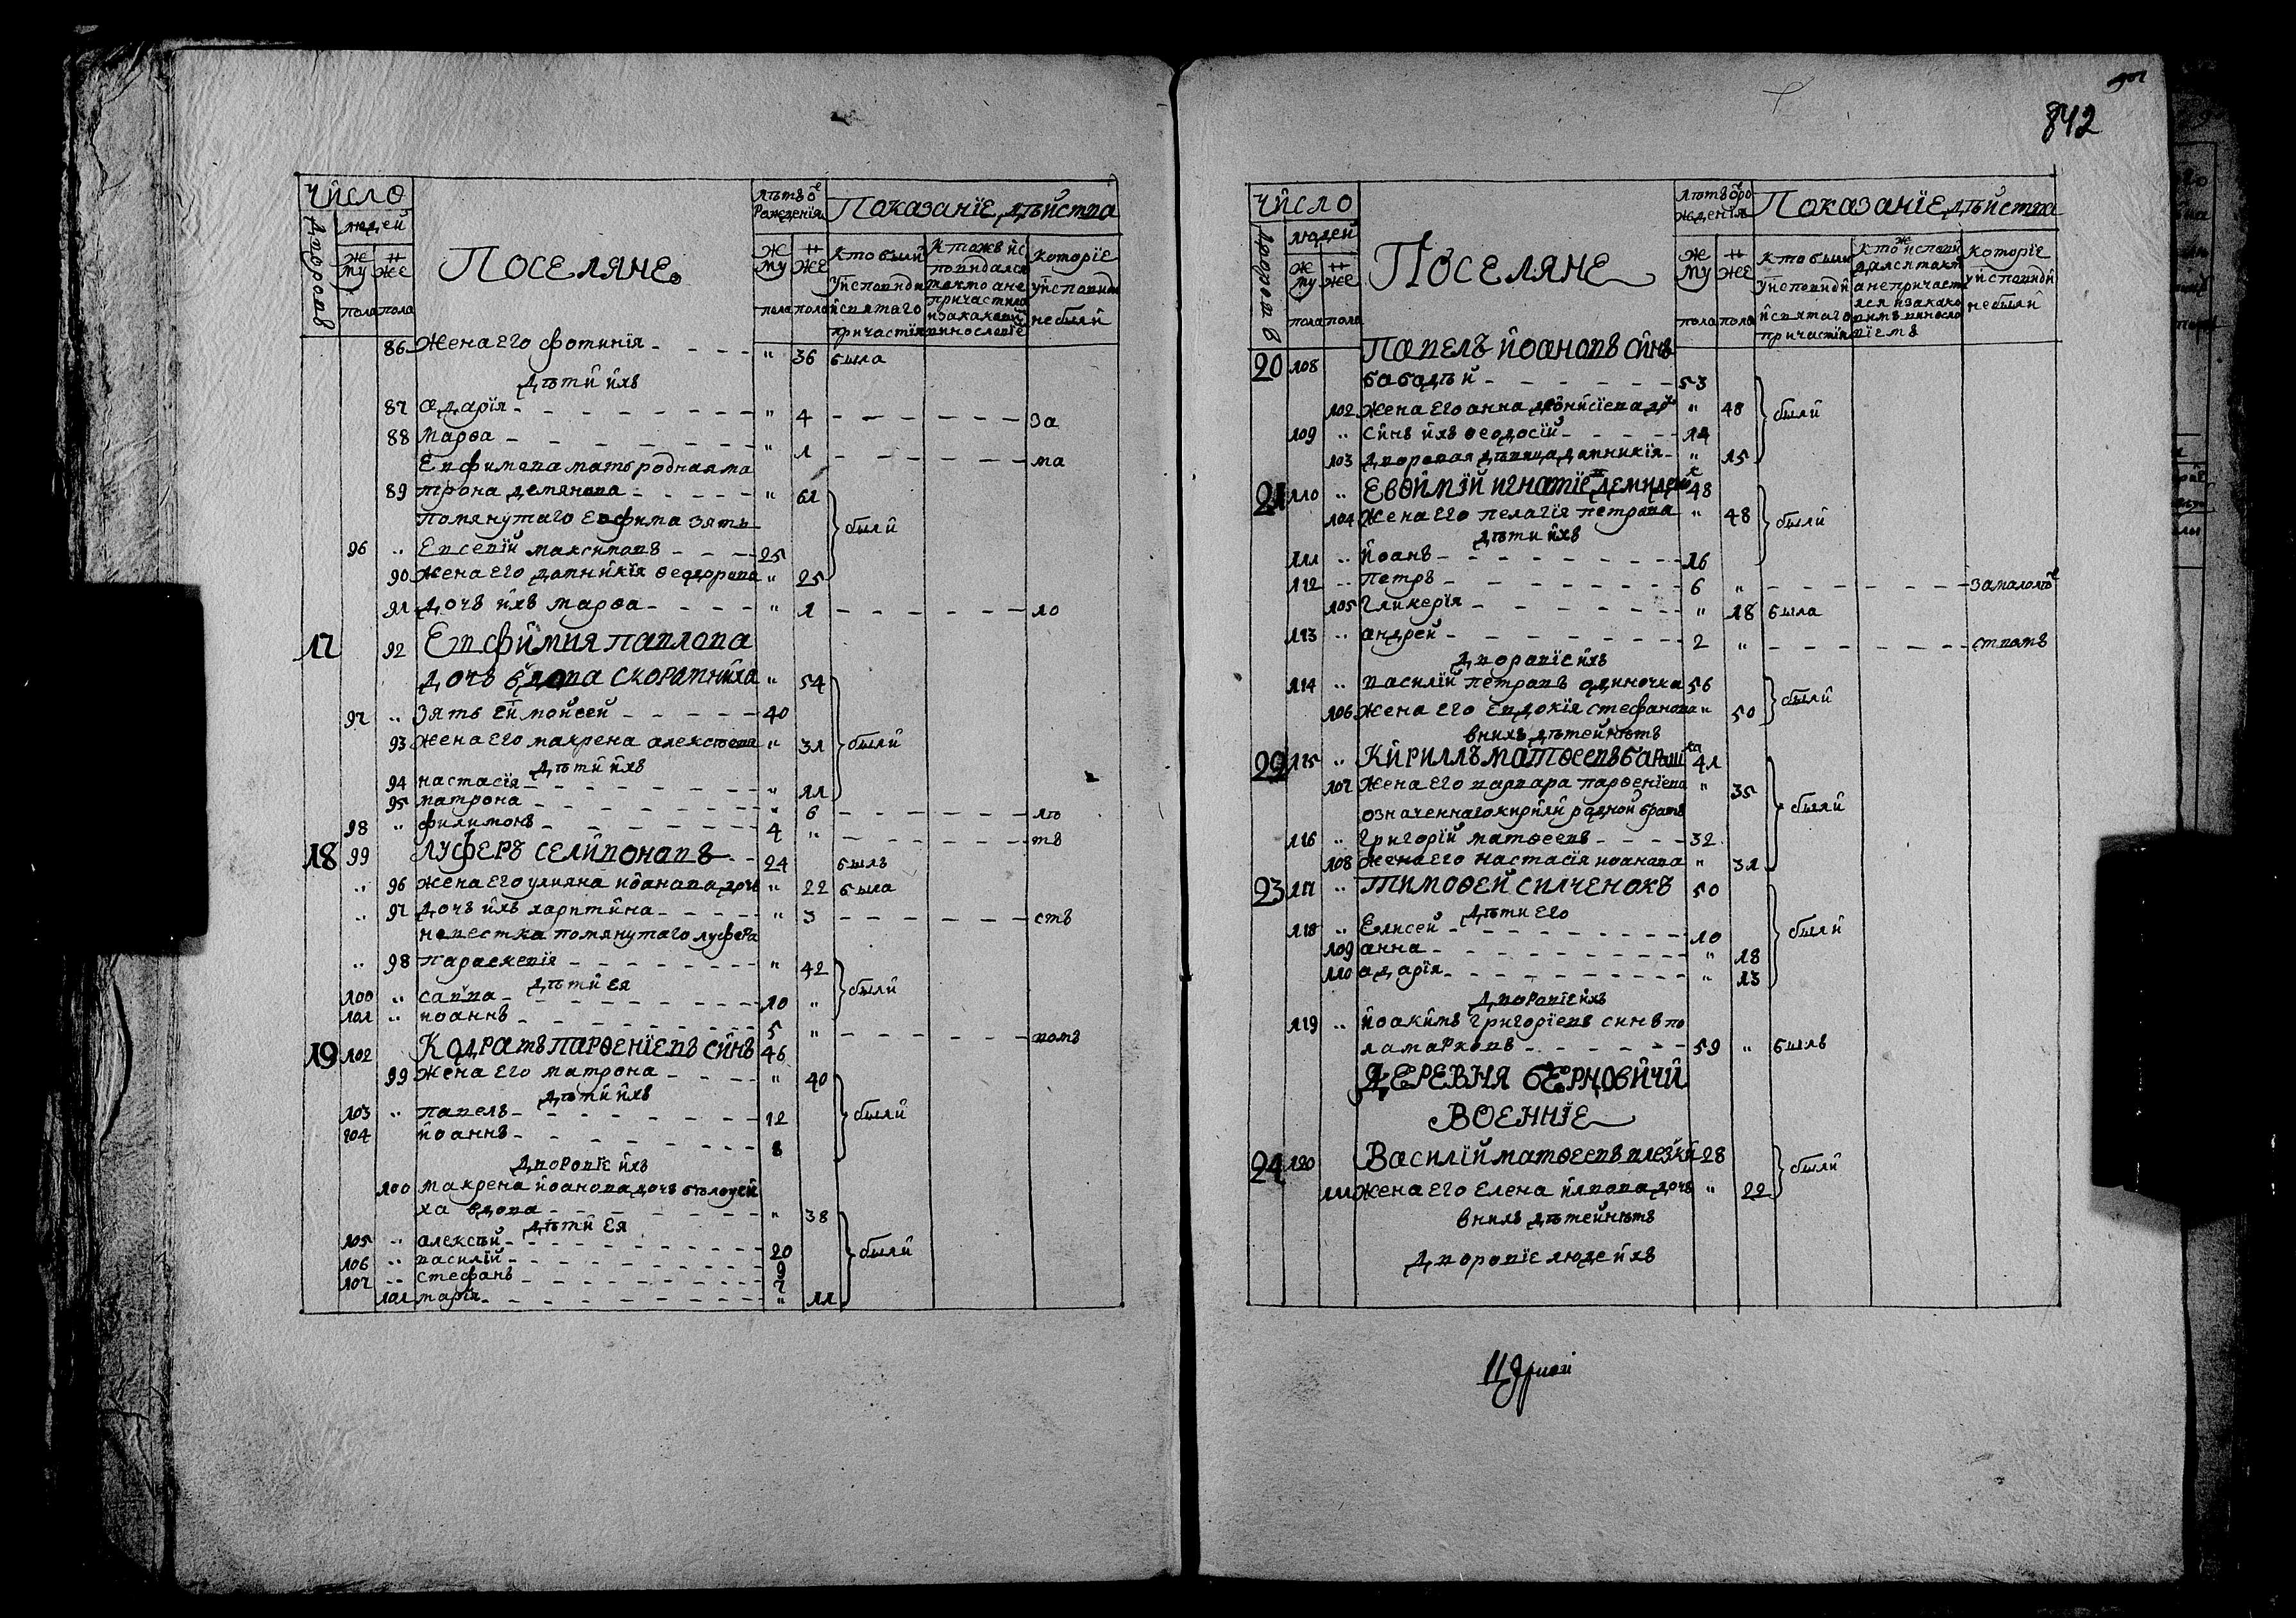 Число
Дворовъ
людей
муж
женъ
пола
пола
Поселяне
Лѣтъ ѿ рожденія
муж
женъ
пола
пола
Показаніе дѣйства
Кто были у исповиди и святаго причастія
Кто же исповидался токмо а не причастился и за каковимъ винословіе
Которіе у исповиди не были
86 жена его фотинія - - - - " 36 была
дѣти ихъ
87 одарія - - - - " 4 - - - - за
88 марѳа - - - - " 1 - - - - ма
Евфимева мать родная ма
89 трона демянова - - - - " 61
помянутаго Евфима зять } были
96 " Евсевій максимовъ - - - 25
90 жена его домникія ѳеодорова " 25
91 дочъ ихъ марѳа - - - - " 1 - - - - ло
17 92 Евфимия павлова
дочъ вдова скоратниха " 54
97 " зять ей мойсей - - - - 40
93 жена его макрена алексѣева " 31 } были
дѣти ихъ
94 настасія - - - - " 11
95 матрона - - - - " 6 - - - - лѣ
98 " филимонъ - - - - 4 " - - - - тъ
18 99 луферъ селивоновъ - - 24 былъ
" 96 жена его улияна иоанова дочъ " 22 была
" 97 дочъ ихъ харитина - - - - " 3 - - - - ств
невестка помянутаго луфера
" 98 параскевія - - - - " 42
дѣти ея } были
100 " савва - - - - 10 "
101 " иоаннъ - - - - 5 " - - - - вомъ
19 102 Кодратъ парѳеніевъ синъ 46
99 жена его матрона - - - - " 40
дѣти ихъ
103 " павелъ - - - - 12 } были
104 иоаннъ - - - - 8
дворовіе ихъ
100 макрена иоанова дочъ
ха вдова - - - - " 38
дѣти ея
105 " алексѣй - - - - 20 } были
106 " василій - - - - 9
107 " стефанъ - - - - 7
101 марія - - - - " 11
842
Число
Дворовъ
людей
муж
женъ
пола
пола
Поселяне
Лѣтъ ѿ рожденія
муж
женъ
пола
пола
Показаніе дѣйства
Кто были у исповиди и святаго причастія
Кто же исповидался токмо а не причастился и за каковимъ винословіемъ
Которіе у исповиди не были
20 108 Павелъ иоановъ синъ
бабодѣй - - - - 53
102 жена его анна діонисіева до " 48 } были
109 " синъ ихъ ѳеодосій - - - - 14
103 дворовая дѣвица домникія - " 15
21 110 " Евѳимій игнатіе демиде 48
104 жена его пелагія петрова " 48 } были
дѣти ихъ
111 " иоанъ - - - - 16
112 " петръ - - - - 6 " - - - - замалолѣ
105 гликерія - - - - " 18 была
113 " андрей - - - - 2 " - - - - ствомъ
дворовіе ихъ
114 " василій петровъ одиночка 56 } были
106 жена его евдокія стефанова " 50
внихъ дѣтей нѣтъ
22 115 " Кириллъ матѳеевъ 41
107 жена его варвара парѳеніева " 35
означеннаго кирили родной братъ } были
116 " григорій матѳеевъ - - - - 32
108 жена его настасія иоанова " 31
23 117 " тимоѳей силченокъ 50
дѣти его
118 " Елисей - - - - 10 } были
109 анна - - - - " 18
110 одарія - - - - " 13
дворовіе ихъ
119 " иоакимъ григоріевъ синъ по
ламарковъ - - - - 59 " былъ
Деревня Берновичи
Военніе
24 120 Василій матѳеевъ 28 } были
111 жена его елена илиова дочъ " 22
внихъ дѣтей нѣтъ
дворовіе люде ихъ